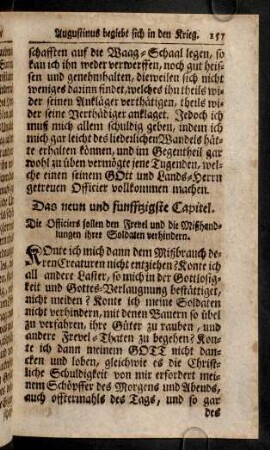 Augustinus begiebt sich in den Krieg. 157
schafften auf die Waag-Schaal legen, so
kan ich ihn weder verwerffen, noch gut heis-
sen und genehmhalten, dieweilen sich nicht
weniges darinn findet, welches ihn theils wi-
der seinen Ankläger verthätigen, theils wi-
der seine Verthädiger anklaget. Jedoch ich
muß mich allem schuldig geben, indem ich
mich gar leicht des liederlichen Wandels hät-
te erhalten können, und im Gegentheil gar
wohl zu üben vermögte jene Tugenden, wel-
che einen seinem GOtt und Lands-Herrn
getreuen Officier vollkommen machen.
Das neun und funffzigste Capitel.
Die Officiers sollen den Frevel und die Mißhand-
lungen ihrer Soldaten verhindern.
KOnte ich mich dann dem Mißbrauch de-
ren Creaturen nicht entziehen? Konte ich
all andere Laster, so mich in der Gottlosig-
keit und Gottes-Verlaugnung bestättiget,
nicht meiden? Konte ich meine Soldaten
nicht verhindern, mit denen Bauern so übel
zu verfahren, ihre Güter zu rauben, und
andere Frevel-Thaten zu begehen? Kon-
te ich dann meinem GOTT nicht dan-
cken und loben, gleichwie es die Christ-
liche Schuldigkeit von mir erfordert mei-
nem Schöpffer des Morgens und Abends,
auch offtermahls des Tags, und so gar
des